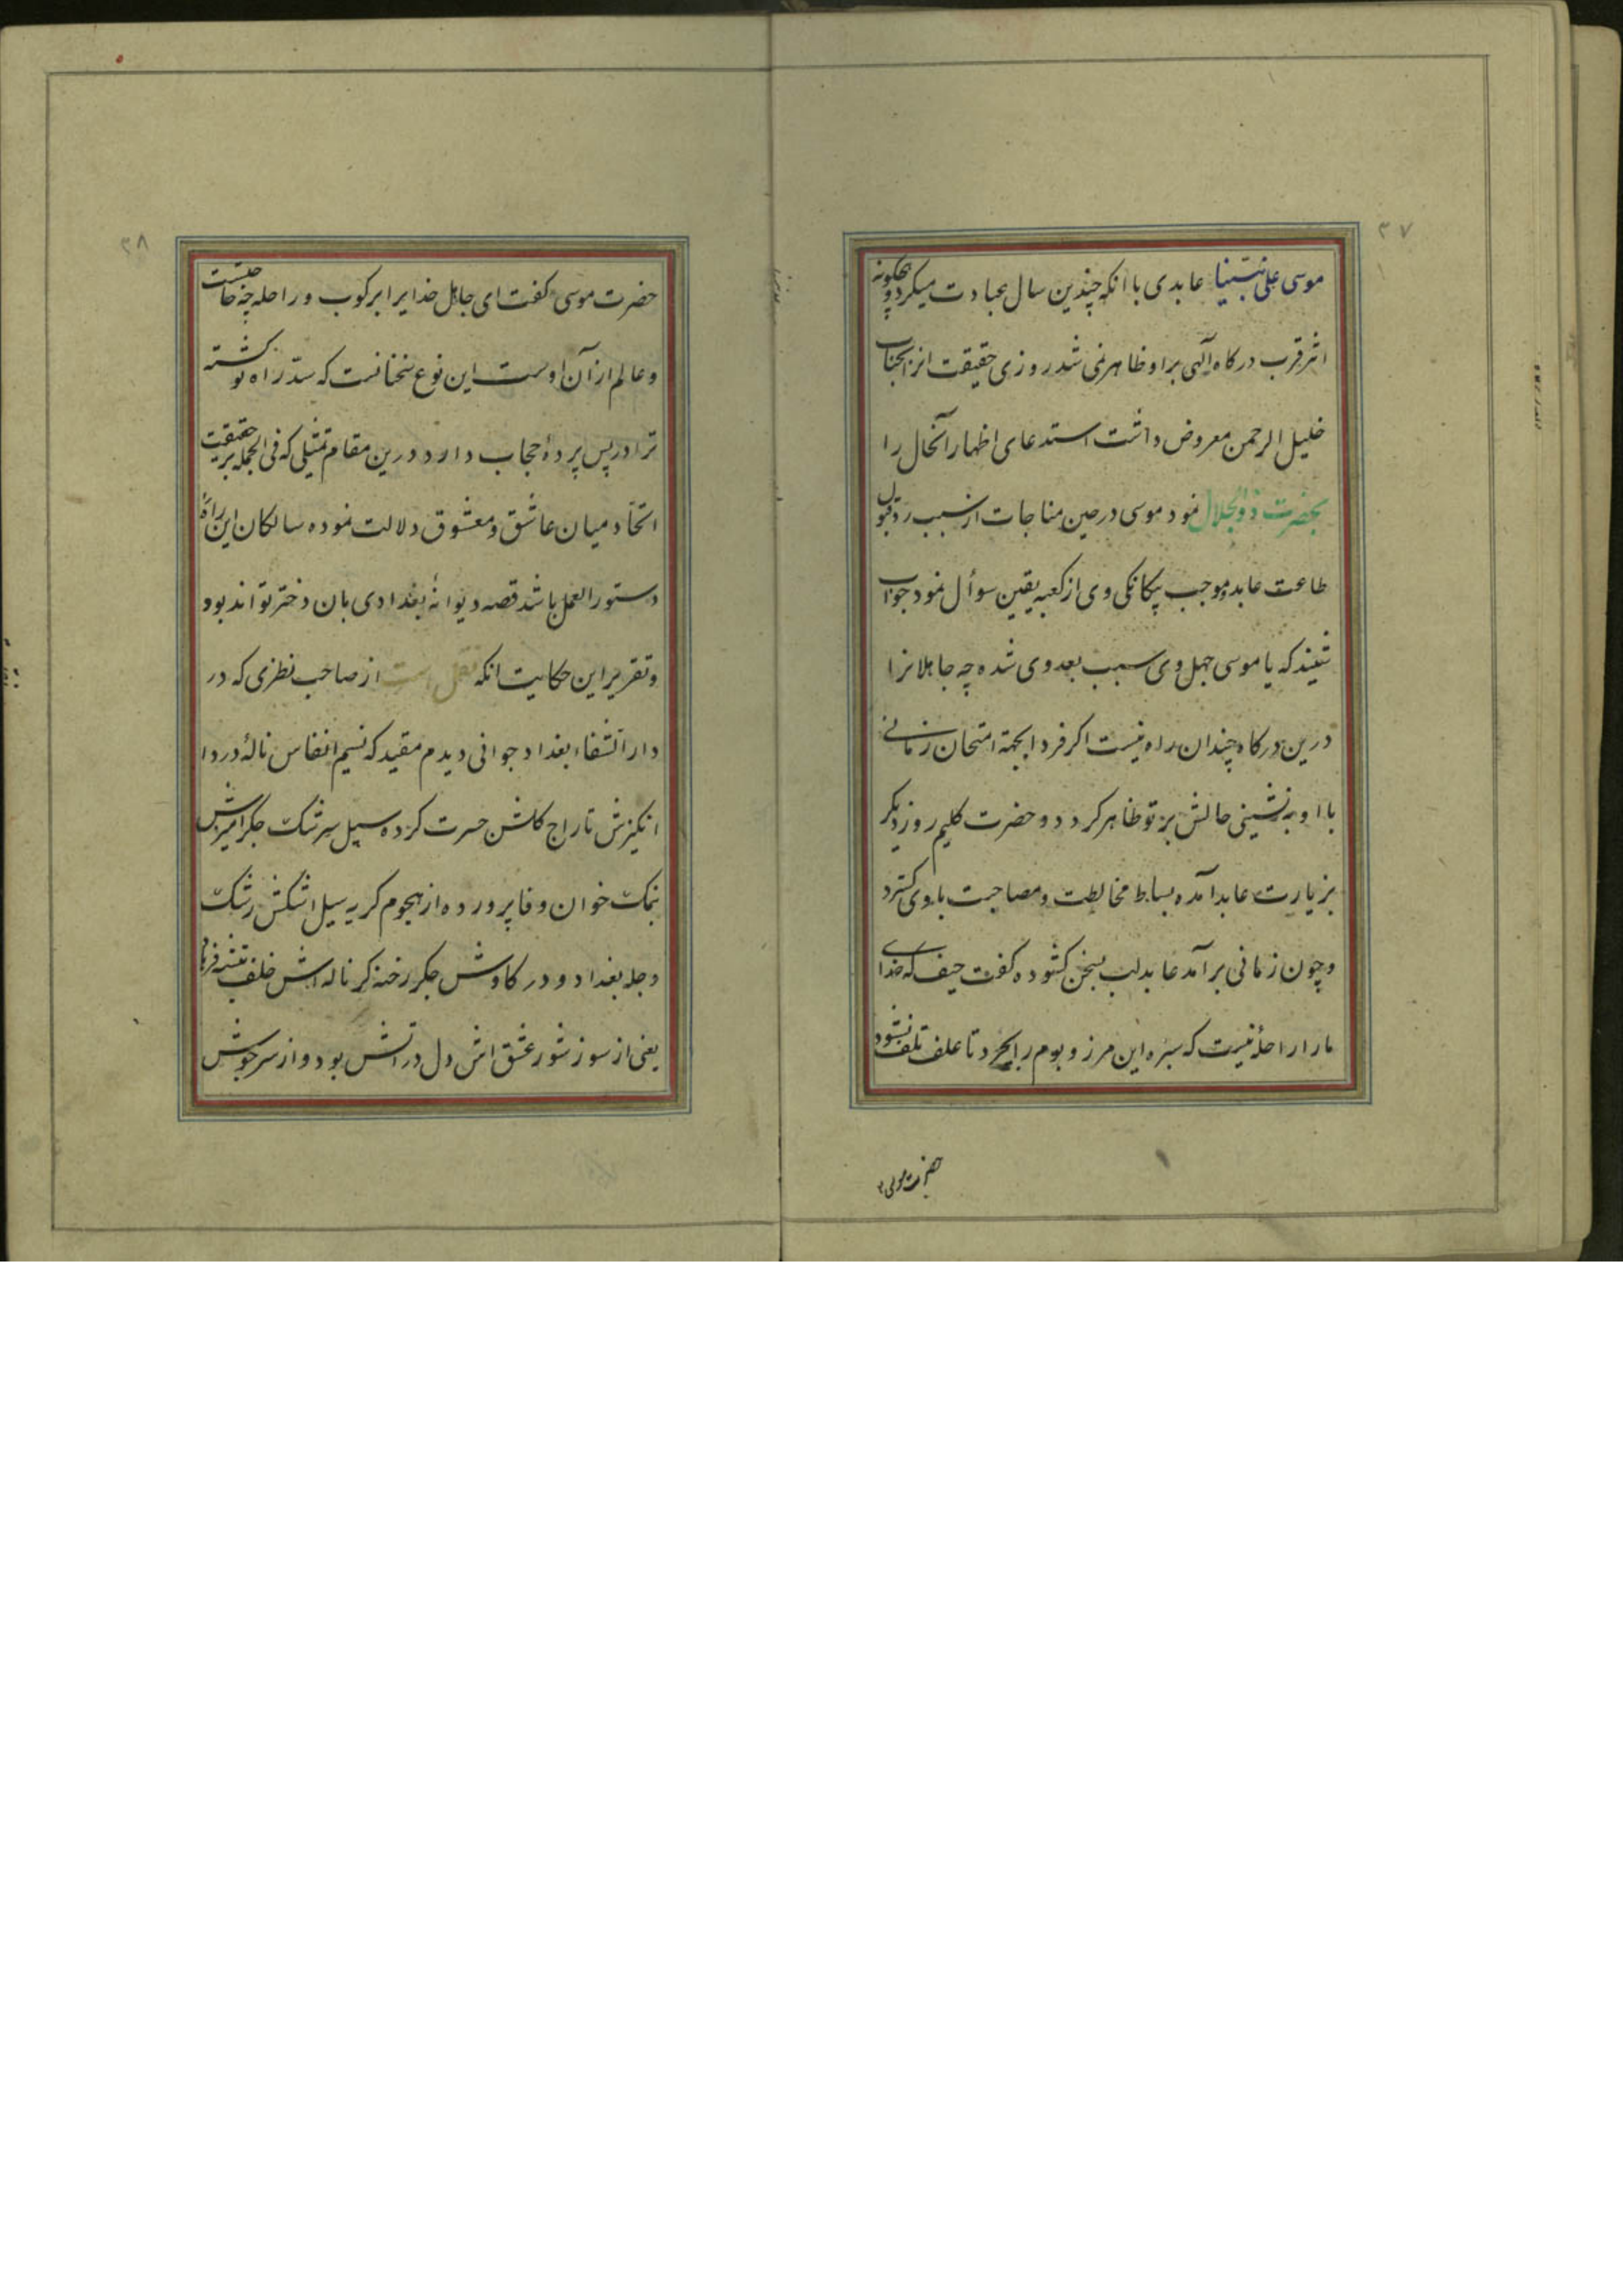 ۲۷
موسی علی نبینا عابدی با انکه چندین سال عبادت میکرد و هیچگونه
اثر قرب درکاه آلهی بر او ظاهر نمی شد روزی حقیقت از انجناب
خلیل الرحمن معروض داشت استدعای اظهار آنحال را
بحضرت ذوالجلال نمود موسی در حین مناجات از سبب رد قبول
طاعت عابد و موجب بیکانکی وی از کعبه یقین سوأل نمود جواب
شنید که یا موسی جهل وی سبب بعد وی شده چه جاهلانرا
درین درکاه چندان راه نیست اکر فردا بجهة امتحان زمانی
با او بنشینی حالش بر تو ظاهر کردد و حضرت کلیم روز دیکر
بزیارت عابد آمده بساط مخالطت و مصاحبت با وی کسترد
و چون زمانی برآمد عابد لب بسخن کشوده کفت حیف که خدای
ما را راحلهٔ نیست که سبزه این مرز و بوم را بچرد تا علف تلف نشود
حضرت موسی
۲۸
حضرت موسی کفت ای جاهل خدایرا برکوب و راحله چه حاجتست
و عالم از آن اوست این نوع سخنانست که سد راه تو کشته
ترا در پس پردهٔ حجاب دارد درین مقام تمثیلی که فی الجمله بر حقیقت
اتحاد میان عاشق و معشوق دلالت نموده سالکان این راه را
دستور العمل باشد قصه دیوانهٔ بغدادی بان دختر تواند بود
و تقریر این حکایت انکه نقل است از صاحب نظری که در
دار الشفاء بغداد جوانی دیدم مقید که نسیم انفاس نالهٔ درد ا
نکیزش تاراج کلشن حسرت کرده سیل سرشک جکر آمیزش
نمک خوان وفا پرورده از هجوم کریه سیل اشکش رشک
دجله بغداد و در کاوش جکر رخنه کر ناله اش خلف تیشه فرهاد
یعنی از سوز شور عشق اش دل در اتش بود و از سرجوش